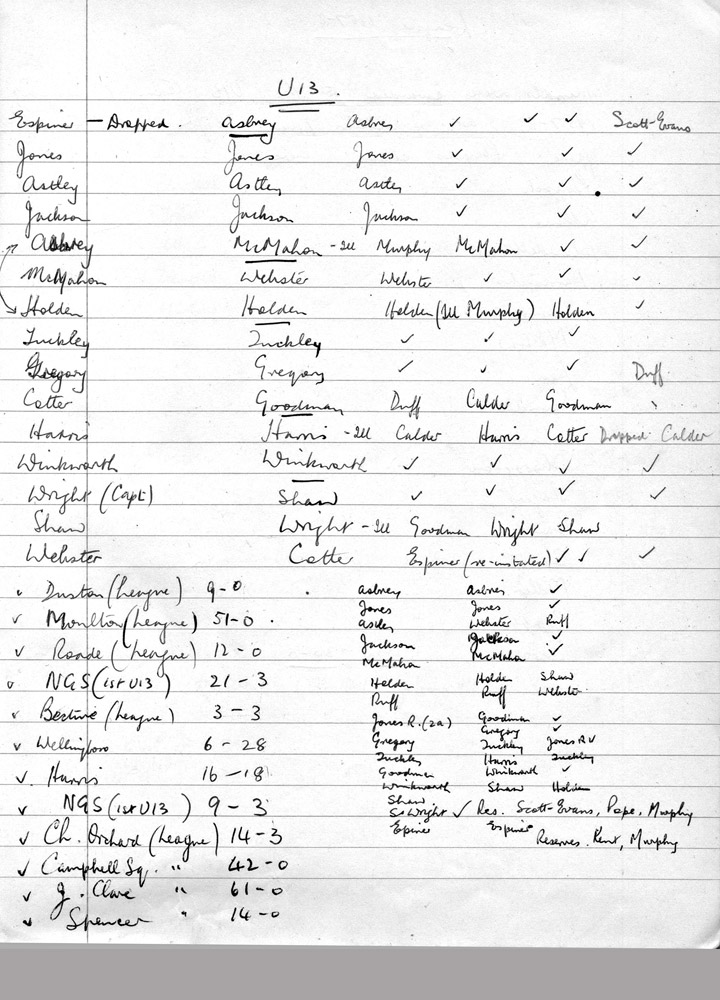 U13.
Espiner — Dropped. Asbrey Asbrey ✓ ✓ ✓ Scott-Evans
Jones Jones Jones ✓ ✓ ✓
Astley Astley Astley ✓ ✓ ✓
Jackson Jackson Jackson ✓ ✓ ✓
Asbrey McMahon - Ill Murphy McMahon ✓ ✓
McMahon Webster Webster ✓ ✓ ✓
Holden Holden Holden (Ill Murphy) Holden ✓
Tuckley Tuckley ✓ ✓ ✓
Gregory Gregory ✓ ✓ ✓ Duff
Cotter Goodman Duff Calder Goodman
Harris Harris - Ill Calder Harris Cotter Dropped Calder
Winkworth Winkworth ✓ ✓ ✓ ✓
Wright (Capt) Shaw ✓ ✓ ✓ ✓
Shaw Wright - Ill Goodman Wright Shaw
Webster Cotter Espiner (re-instated) ✓ ✓ ✓
✓ Duston (League) 9-0 Asbrey Asbrey ✓
Jones Jones ✓
✓ Moulton (League) 51-0. Astley Webster Ruff
✓ Roade (League) 12-0 Jackson Jackson ✓
McMahon McMahon ✓
✓ NGS (1st U13) 21-3 Holden Holden Shaw
Ruff Ruff Webster
✓ Bective (League) 3-3 Jones R. (2a) Goodman ✓
Gregory Gregory ✓
✓ Wellingboro 6-28 Tuckley Tuckley Jones R ✓
Goodman Harris Tuckley
✓ Harris 16-18 Winkworth Winkworth ✓
Shaw Shaw Holden
✓ NGS (1st U13) 9-3 S. Wright ✓ Res. Scott-Evans, Pape, Murphy
✓ Ch. Orchard (League) 14-3 Espiner Espiner Reserves. Kent, Murphy
✓ Campbell Sq. " 42-0
✓ J. Clare " 61-0
✓ Spencer " 14-0